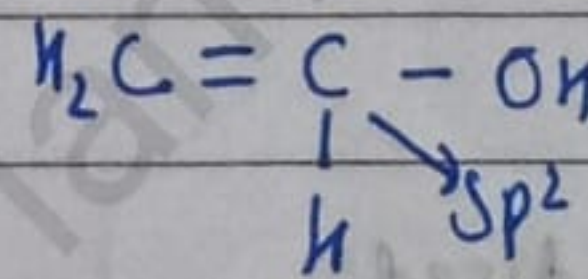 H₂C = C - OH
|
H
Sp²